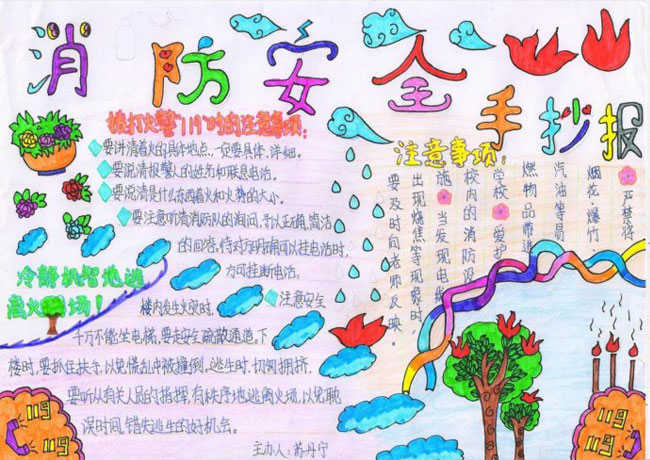 消防安全手抄报
拨打火警“119”时的注意事项:
要讲清着火的具体地点,一定要具体、详细。
要说清报警人的姓名和联系电话。
要说清是什么东西着火和火势的大小。
要注意听清消防队的询问,予以正确,简洁
的回答,待对方明确可以挂电话时,
方可挂断电话。
注意事项:
严禁将
烟花、爆竹
汽油等易
燃物品带进
学校 爱护
校内的消防设
施 当发现电线
出现烧焦等现象时,
要及时向老师反映。
冷静机智地逃
离火场!
注意安全
楼内发生火灾时,
千万不能坐电梯,要走安全疏散通道。下
楼时,要抓住扶手,以免慌乱中被撞倒。逃生时,切勿拥挤,
要听从有关人员的指挥,有秩序地逃离火场,以免耽
误时间,错失逃生的好机会。
主办人:苏丹宁
119
119
119
119